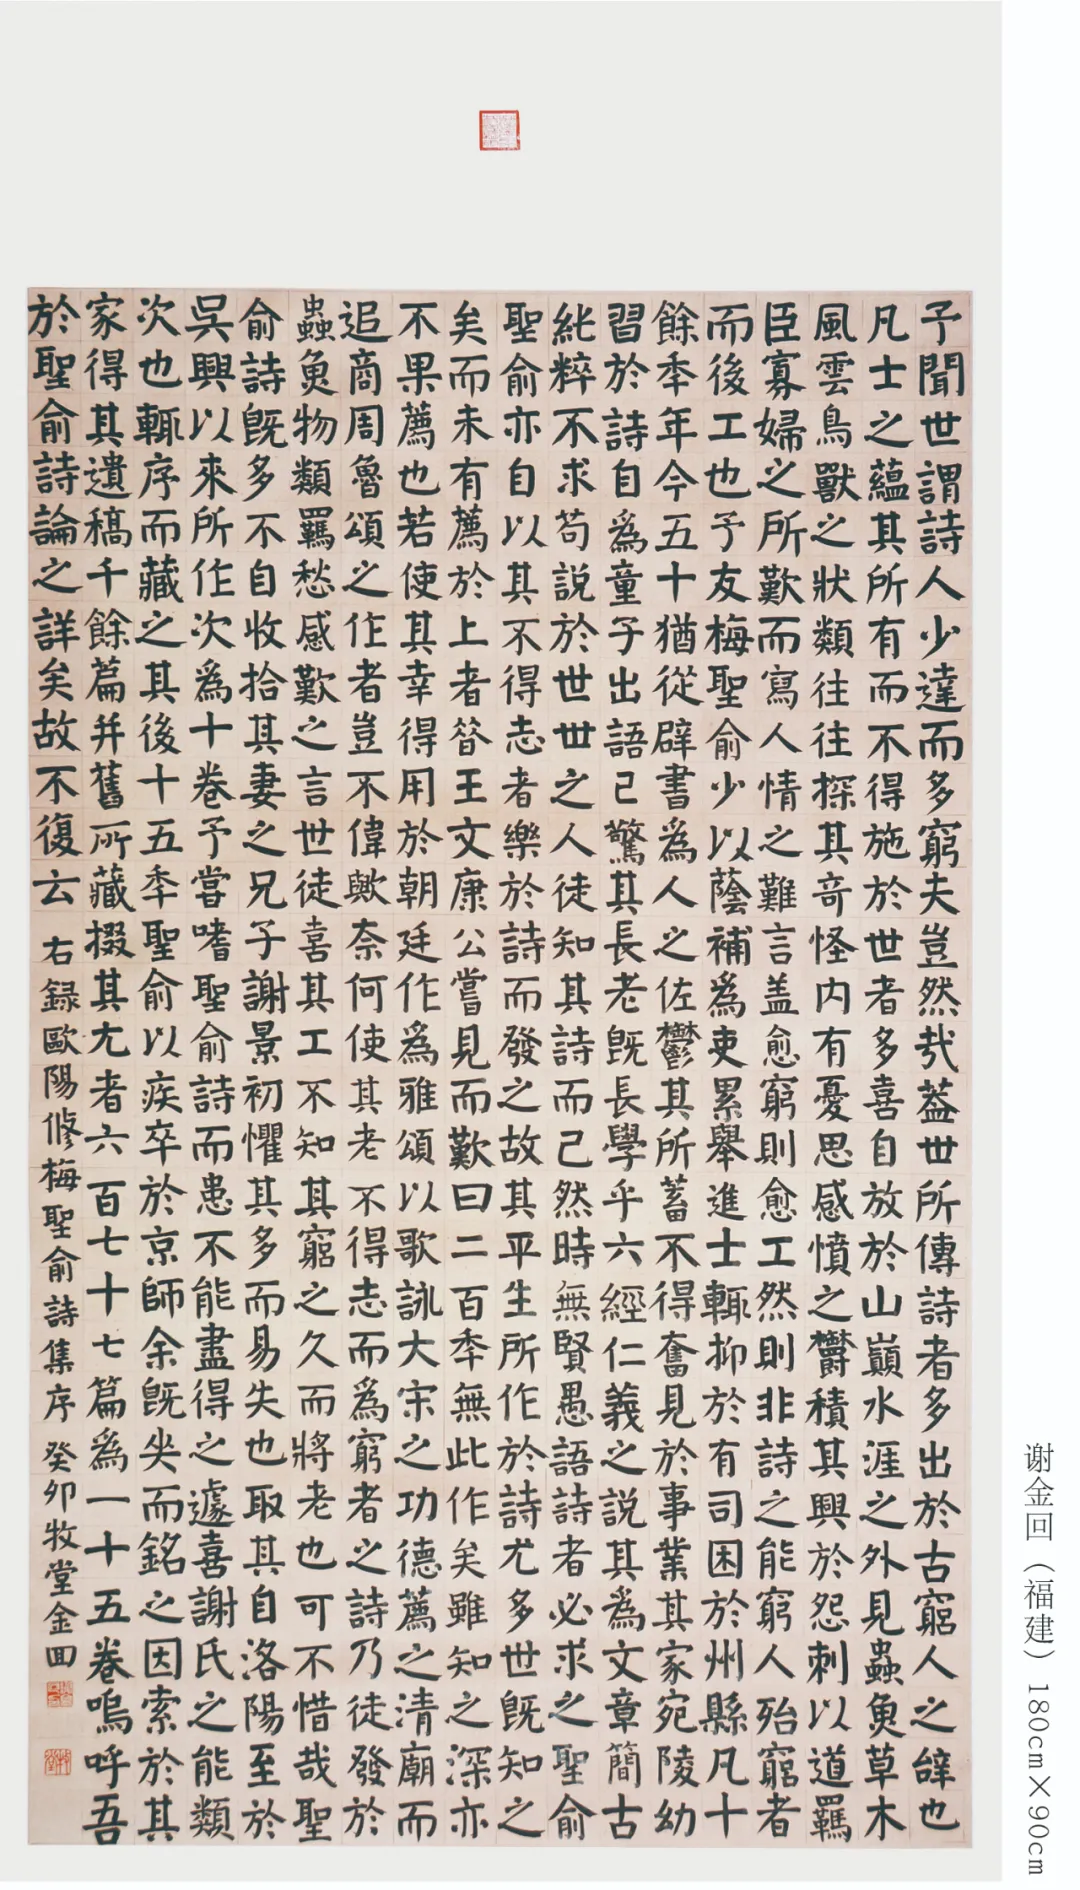 予聞世謂詩人少達而多窮夫豈然㢤葢世所傳詩者多出於古窮人之辭也
凡士之蘊其所有而不得施於世者多喜自放於山巔水涯之外見蟲魚草木
風雲鳥獸之狀類往往探其奇怪内有憂思感憤之欝積其興於怨刺以道羈
臣寡婦之所歎而寫人情之難言盖愈窮則愈工然則非詩之能窮人殆窮者
而後工也予友梅聖俞少以蔭補爲吏累舉進士輒抑於有司困於州縣凡十
餘秊年今五十猶從辟書爲人之佐鬱其所蓄不得奮見於事業其家宛陵幼
習於詩自爲童子出語已驚其長老既長學乎六經仁義之說其爲文章簡古
純粹不求苟說於世世之人徒知其詩而已然時無賢愚語詩者必求之聖俞
聖俞亦自以其不得志者樂於詩而發之故其平生所作於詩尤多世既知之
矣而未有薦於上者昝王文康公嘗見而歎曰二百秊無此作矣雖知之深亦
不果薦也若使其幸得用於朝廷作爲雅頌以歌詠大宋之功德薦之清廟而
追商周魯頌之作者豈不偉歟奈何使其老不得志而爲窮者之詩乃徒發於
蟲魚物類羈愁感歎之言世徒喜其工不知其窮之久而將老也可不惜哉聖
俞詩既多不自收拾其妻之兄子謝景初懼其多而易失也取其自洛陽至於
吳興以來所作次爲十卷予嘗嗜聖俞詩而患不能盡得之遽喜謝氏之能類
次也輒序而藏之其後十五秊聖俞以疾卒於京師余既哭而銘之因索於其
家得其遺稿千餘篇并舊所藏掇其尤者六百七十七篇爲一十五卷嗚呼吾
於聖俞詩論之詳矣故不復云 右録歐陽修梅聖俞詩集序 癸卯牧堂金回
谢金回（福建）180cm×90cm